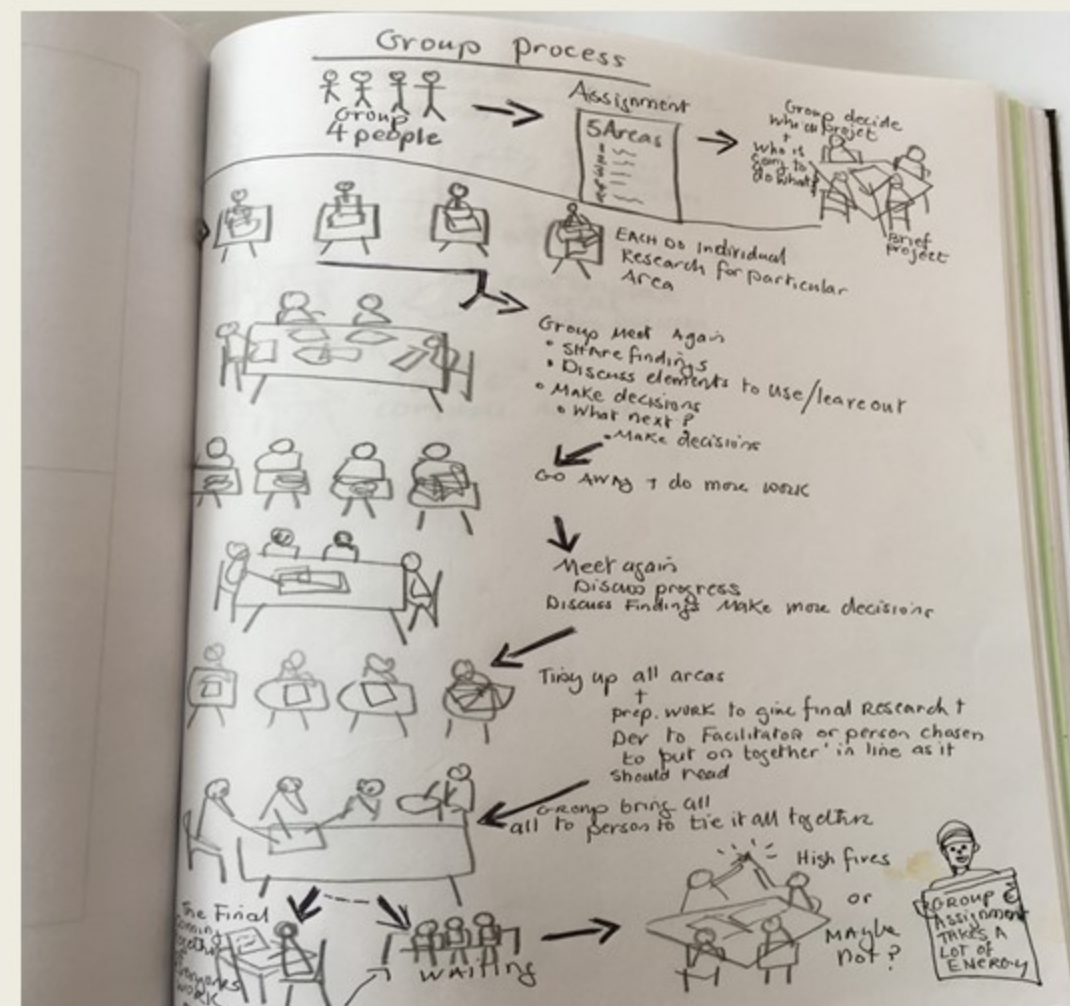 Group process
Group
4 people
Assignment
5 Areas
Group decide
which projet
+
who is
going to
do what?
Brief
project
EACH DO Individual
Research for particular
Area
Group Meet Again
• SHAre findings
• Discuss elements to use/leave out
• Make decisions
• What next?
• Make decisions
GO AWAy + do more work
Meet again
Discuss progress
Discuss Findings Make more decisions
Tidy up all areas
+
prep. WORK to give final Research +
Dev to Facilitator or person chosen
to 'put on together' in line as it
should read
Group bring all
all to person to tie it all together
The Final
coming
together
of
Everyones
work
WAITING
High fives
or
MAybe
not?
GROUP
Assignment
TAKES A
LOT OF
ENERGY